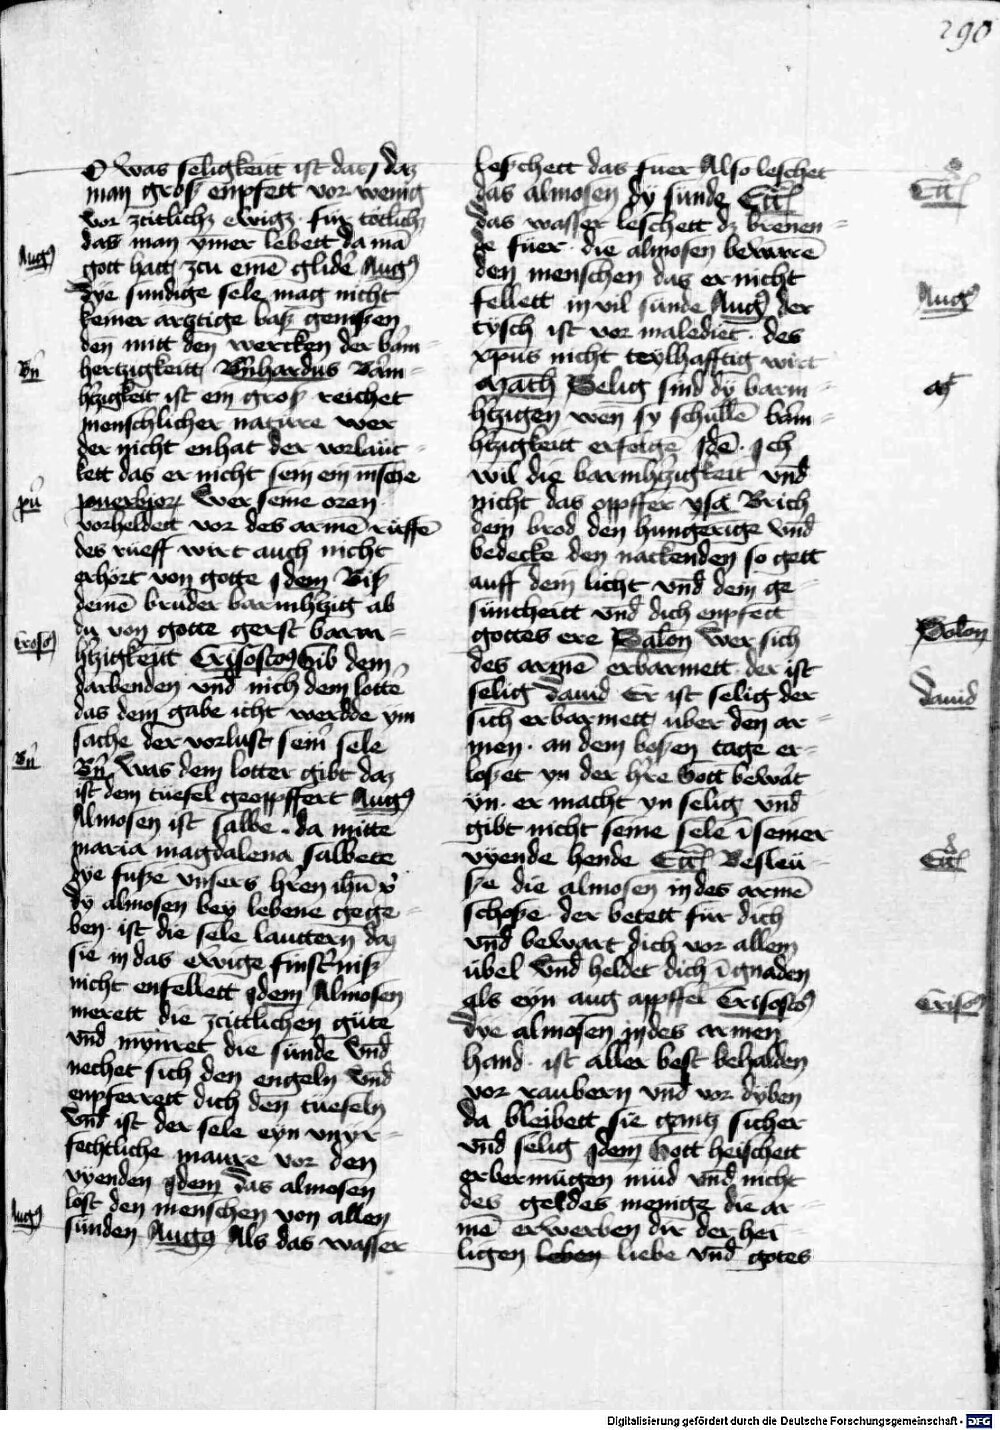 290
O was seligkeit ist das / daz
man grosz enpfett vor wenig
vor zcitlichz ewigz für totlichz
das man ÿmer lebett da mā
gott hatt zcu emē glide Augꝰ
dye sundige sele mag nicht
keiner arztige basz geniszen
den mitt den wercken der bȧm
hertzigkeitt Bn̄hardus Bȧm
h̄tzigkeit ist ein grosz reichet
menschlicher nature wer
der nicht enhat der vorlaüt
kett das er nicht sein ein m̄sche
prouerbior Wer seine oren
vorheldett vor des arme rüffē
des rueff wirt auch nicht
erhört von gotte Jdem Bisz
deinē bruder barmh̄tzig ab
du von gotte gerst barm
h̄tzigkeitt Crisostoꝰ Gib dem
darbenden vnd nich dem lottē
das dem gabe icht werdde ym
sache der vorlust sein sele
Bn̄ Was dem lotter gibt daz
ist dem tüesel geopffert Augꝰ
Almosen ist salbe da mitte
maria magdalena salbete
dye fusze vnsers hren ihū xp̄
dÿ almosen beÿ lebene gege
ben ist die sele lauttern daz
sie in das ewige finst̄nisz
nicht enfellett Jdem Almosen
merett die zcittlichen güte
vnd mynret die sünde Vnd
nechet sich den engeln Vnd
enpferrett dich den tüeseln
Vnd ist der sele eyn vnyr
fechtliche maure vor den
vyenden Jdem das almosen
lost den menschen von allen
sünden Augꝰ Als das wasser
leschett das fuer Also leschet
das almosen dÿ sünde Ecc̄l
das wasser leschett dz brēnen
de füer die almosen bewarē
den menschen das er nicht
fellett in vil sunde Augꝰ der
tysch ist vor malediet des
xpūs nicht teylhafftig wirt
Math Selig sind dÿ barm
h̄tzigen wen sy schullē bam
h̄tzigkeitt erfolge Jdē Jch
wil die barmh̄tzigkeit Vnd
nicht das oppffer ysā Brich
dem brod den hungerige Vnd
bedecke den nackenden so gett
auff dein licht vnd dein ge
süntheitt vnd dich enpfett
gottes ere Salon Wer sich
des armē erbarmett der ist
selig dauid Er ist selig der
sich erbarmett über den ar
men an dem boszen tage er
loszet yn der h̄re Gott bewȧt
ÿn er macht yn selig Vnd
gibt nicht seine sele ī seiner
vÿende hende Ecc̄l Besleü
sze die almosen in des armē
schosze der betett für dich
vnd bewart dich vor allem
übel Vnd heldet dich ī gnaden
als eyn aug appffel Crisostoꝰ
dye almosen in des armen
hand ist aller best behalden
vor raubern vnd vor dyben
da bleibett sie gantz sicher
vnd selig Jdem Gott heischett
erbermugen müd vnd nicht
des geldes menige die ar
mē erwerben dir der hei
ligen leben liebe vnd gotes
Augꝰ
Bn̄
pū
Crosoꝰ
Bn̄
Augꝰ
Ecc̄l
Augꝰ
Salon
dauid
Ecc̄l
Crisoꝰ
Digitalisierung gefördert durch die Deutsche Forschungsgemeinschaft - DFG